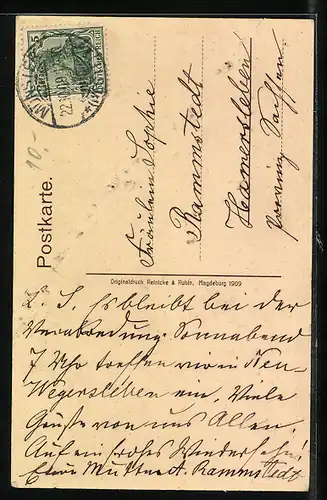 5
22.
10,-
Postkarte.
Fräulein Sophie
Rammstedt
Hamersleben
Provinz Sachsen.
Originaldruck Reinicke & Rubin, Magdeburg 1909
L. S. Es bleibt bei der
Verabredung. Sonnabend
7 Uhr treffen wir in Neu-
Wegersleben ein. Viele
Grüße von uns Allen.
Auf ein frohes Wiedersehn!
Eure Mutter A. Rammstedt